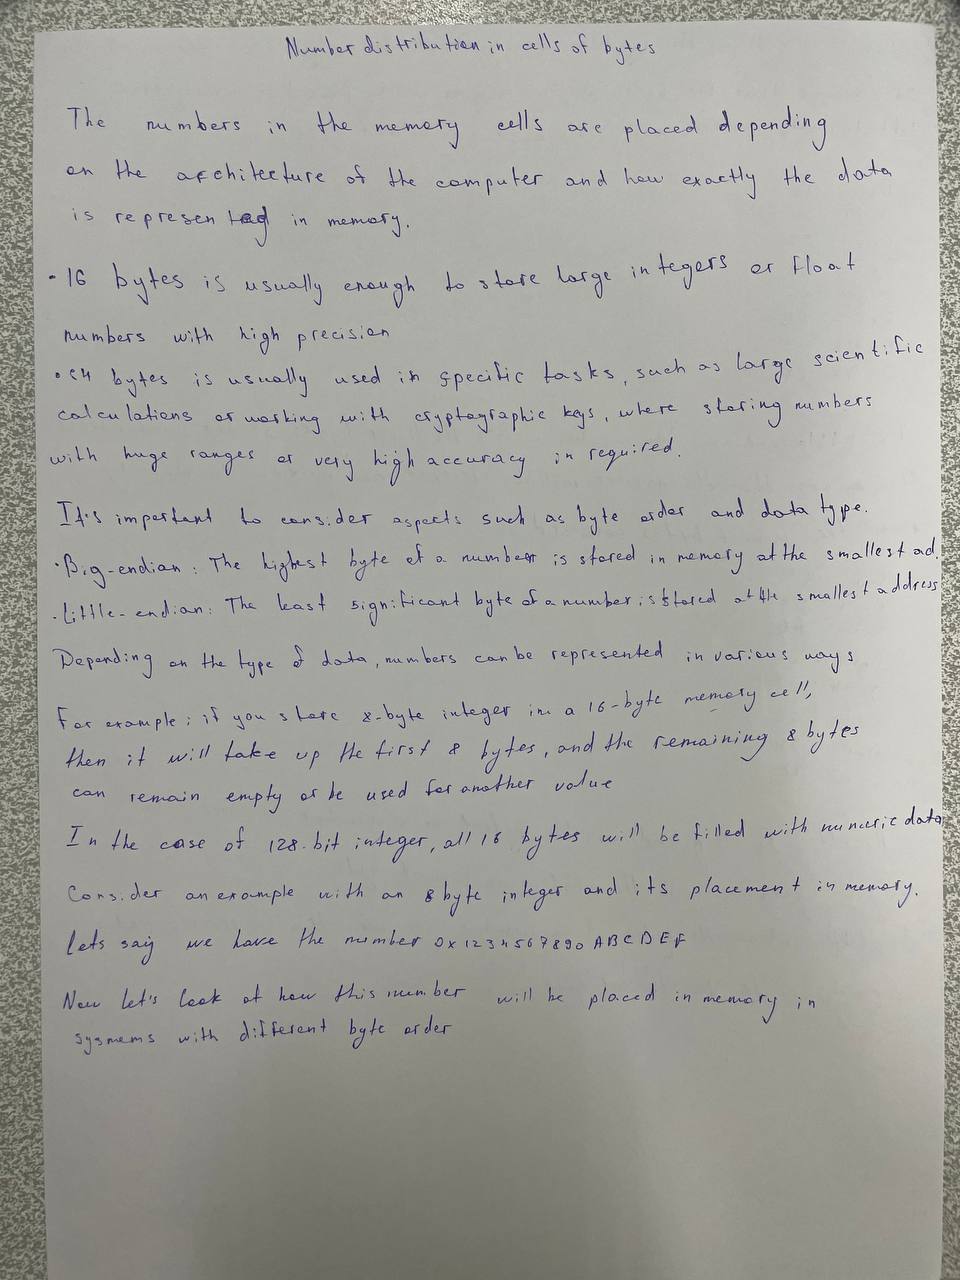 Number distribution in cells of bytes
The numbers in the memory cells are placed depending
on the architecture of the computer and how exactly the data
is represented in memory.
• 16 bytes is usually enough to store large integers or float
numbers with high precision
• 64 bytes is usually used in specific tasks, such as large scientific
calculations or working with cryptographic keys, where storing numbers
with huge ranges or very high accuracy in required.
It's important to consider aspects such as byte order and data type.
• Big-endian: The highest byte of a number is stored in memory at the smallest ad.
• Little-endian: The least significant byte of a number is stored at the smallest address
Depending on the type of data, numbers can be represented in various ways
For example: if you store 8-byte integer in a 16-byte memory cell,
then it will take up the first 8 bytes, and the remaining 8 bytes
can remain empty or be used for another value
In the case of 128-bit integer, all 16 bytes will be filled with numeric data
Consider an example with an 8 byte integer and its placement in memory.
Lets say we have the number 0x1234567890ABCDEF
Now let's look at how this number will be placed in memory in
sysmems with different byte order